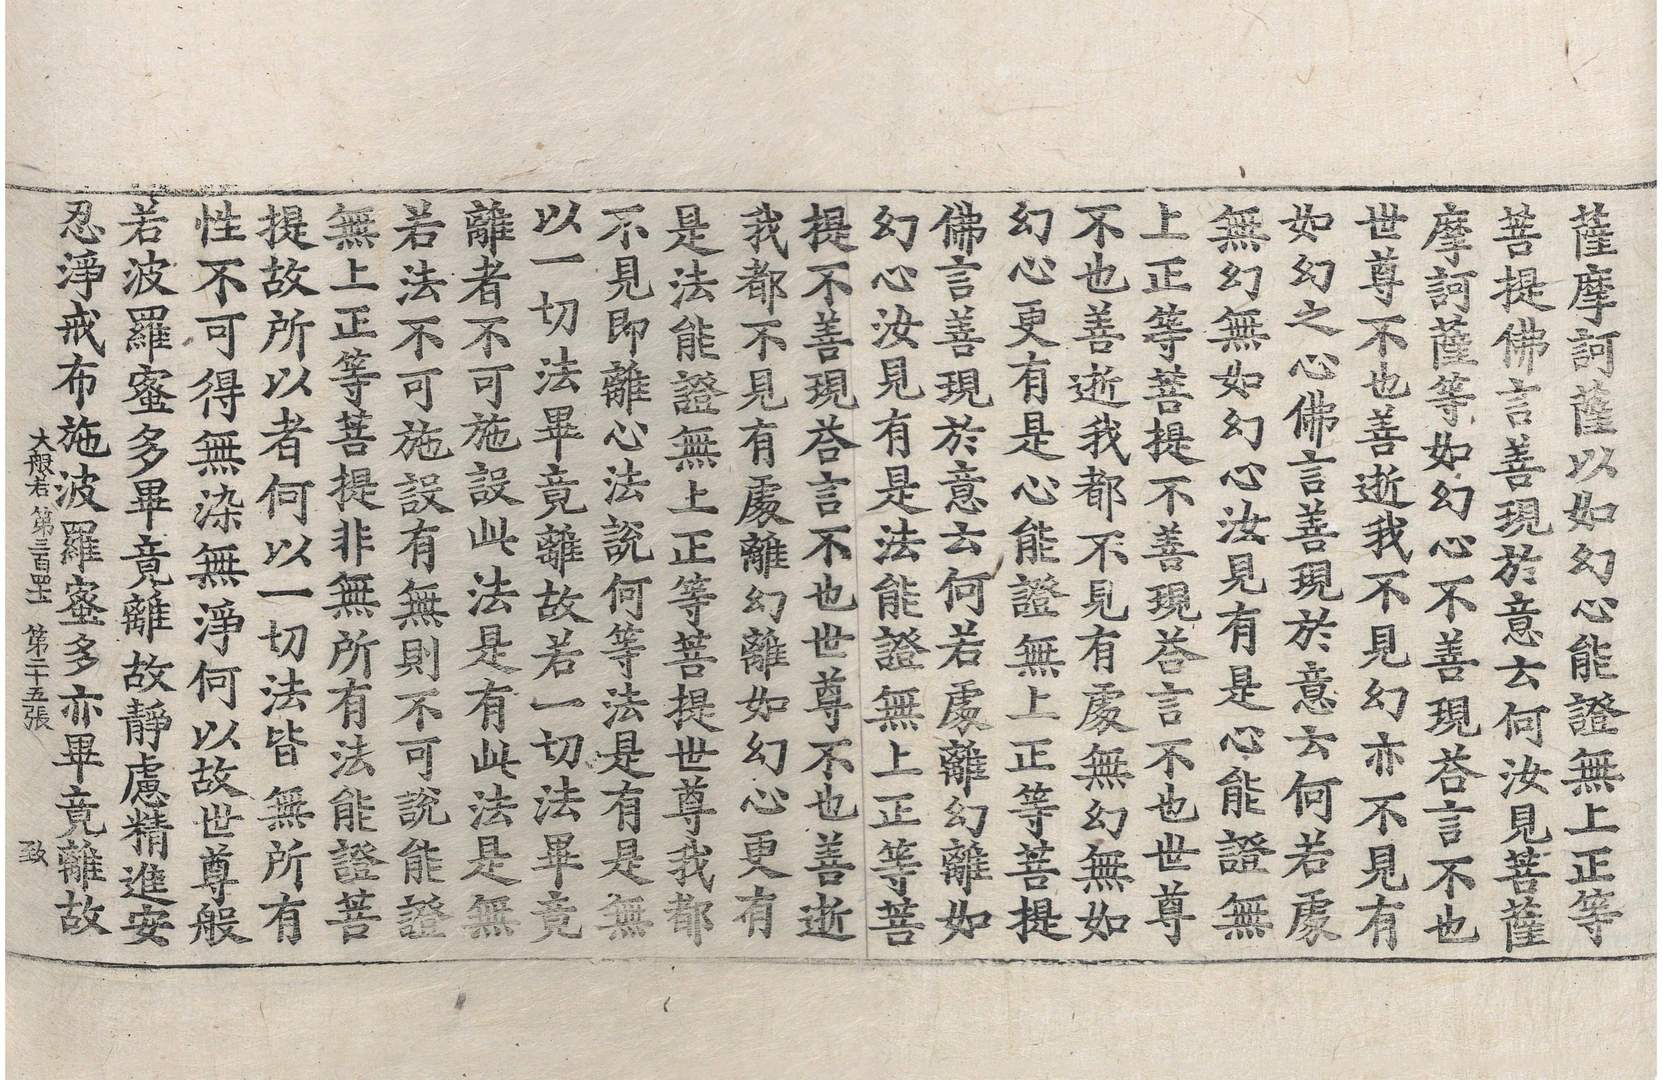 薩摩訶薩以如幻心能證無上正等
菩提佛言善現於意云何汝見菩薩
摩訶薩等如幻心不善現荅言不也
世尊不也善逝我不見幻亦不見有
如幻之心佛言善現於意云何若處
無幻無如幻心汝見有是心能證無
上正等菩提不善現荅言不也世尊
不也善逝我都不見有處無幻無如
幻心更有是心能證無上正等菩提
佛言善現於意云何若處離幻離如
幻心汝見有是法能證無上正等菩
提不善現荅言不也世尊不也善逝
我都不見有處離幻離如幻心更有
是法能證無上正等菩提世尊我都
不見即離心法說何等法是有是無
以一切法畢竟離故若一切法畢竟
離者不可施設此法是有此法是無
若法不可施設有無則不可說能證
無上正等菩提非無所有法能證菩
提故所以者何以一切法皆無所有
性不可得無染無淨何以故世尊般
若波羅蜜多畢竟離故靜慮精進安
忍淨戒布施波羅蜜多亦畢竟離故
大般若第三百四十五 第二十五張 致